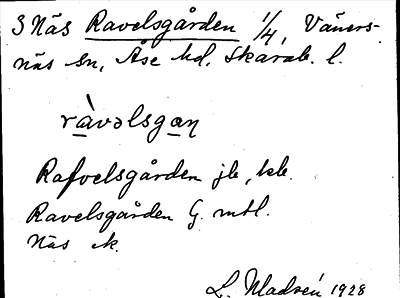 3 Näs Ravelsgården 1/4, Väners-
näs sn, Åse hd, Skarab. l.
ràvəlsgaɳ
Rafvelsgården jb, kb.
Ravelsgården G. mtl.
Näs ek.
L. Madsén 1928